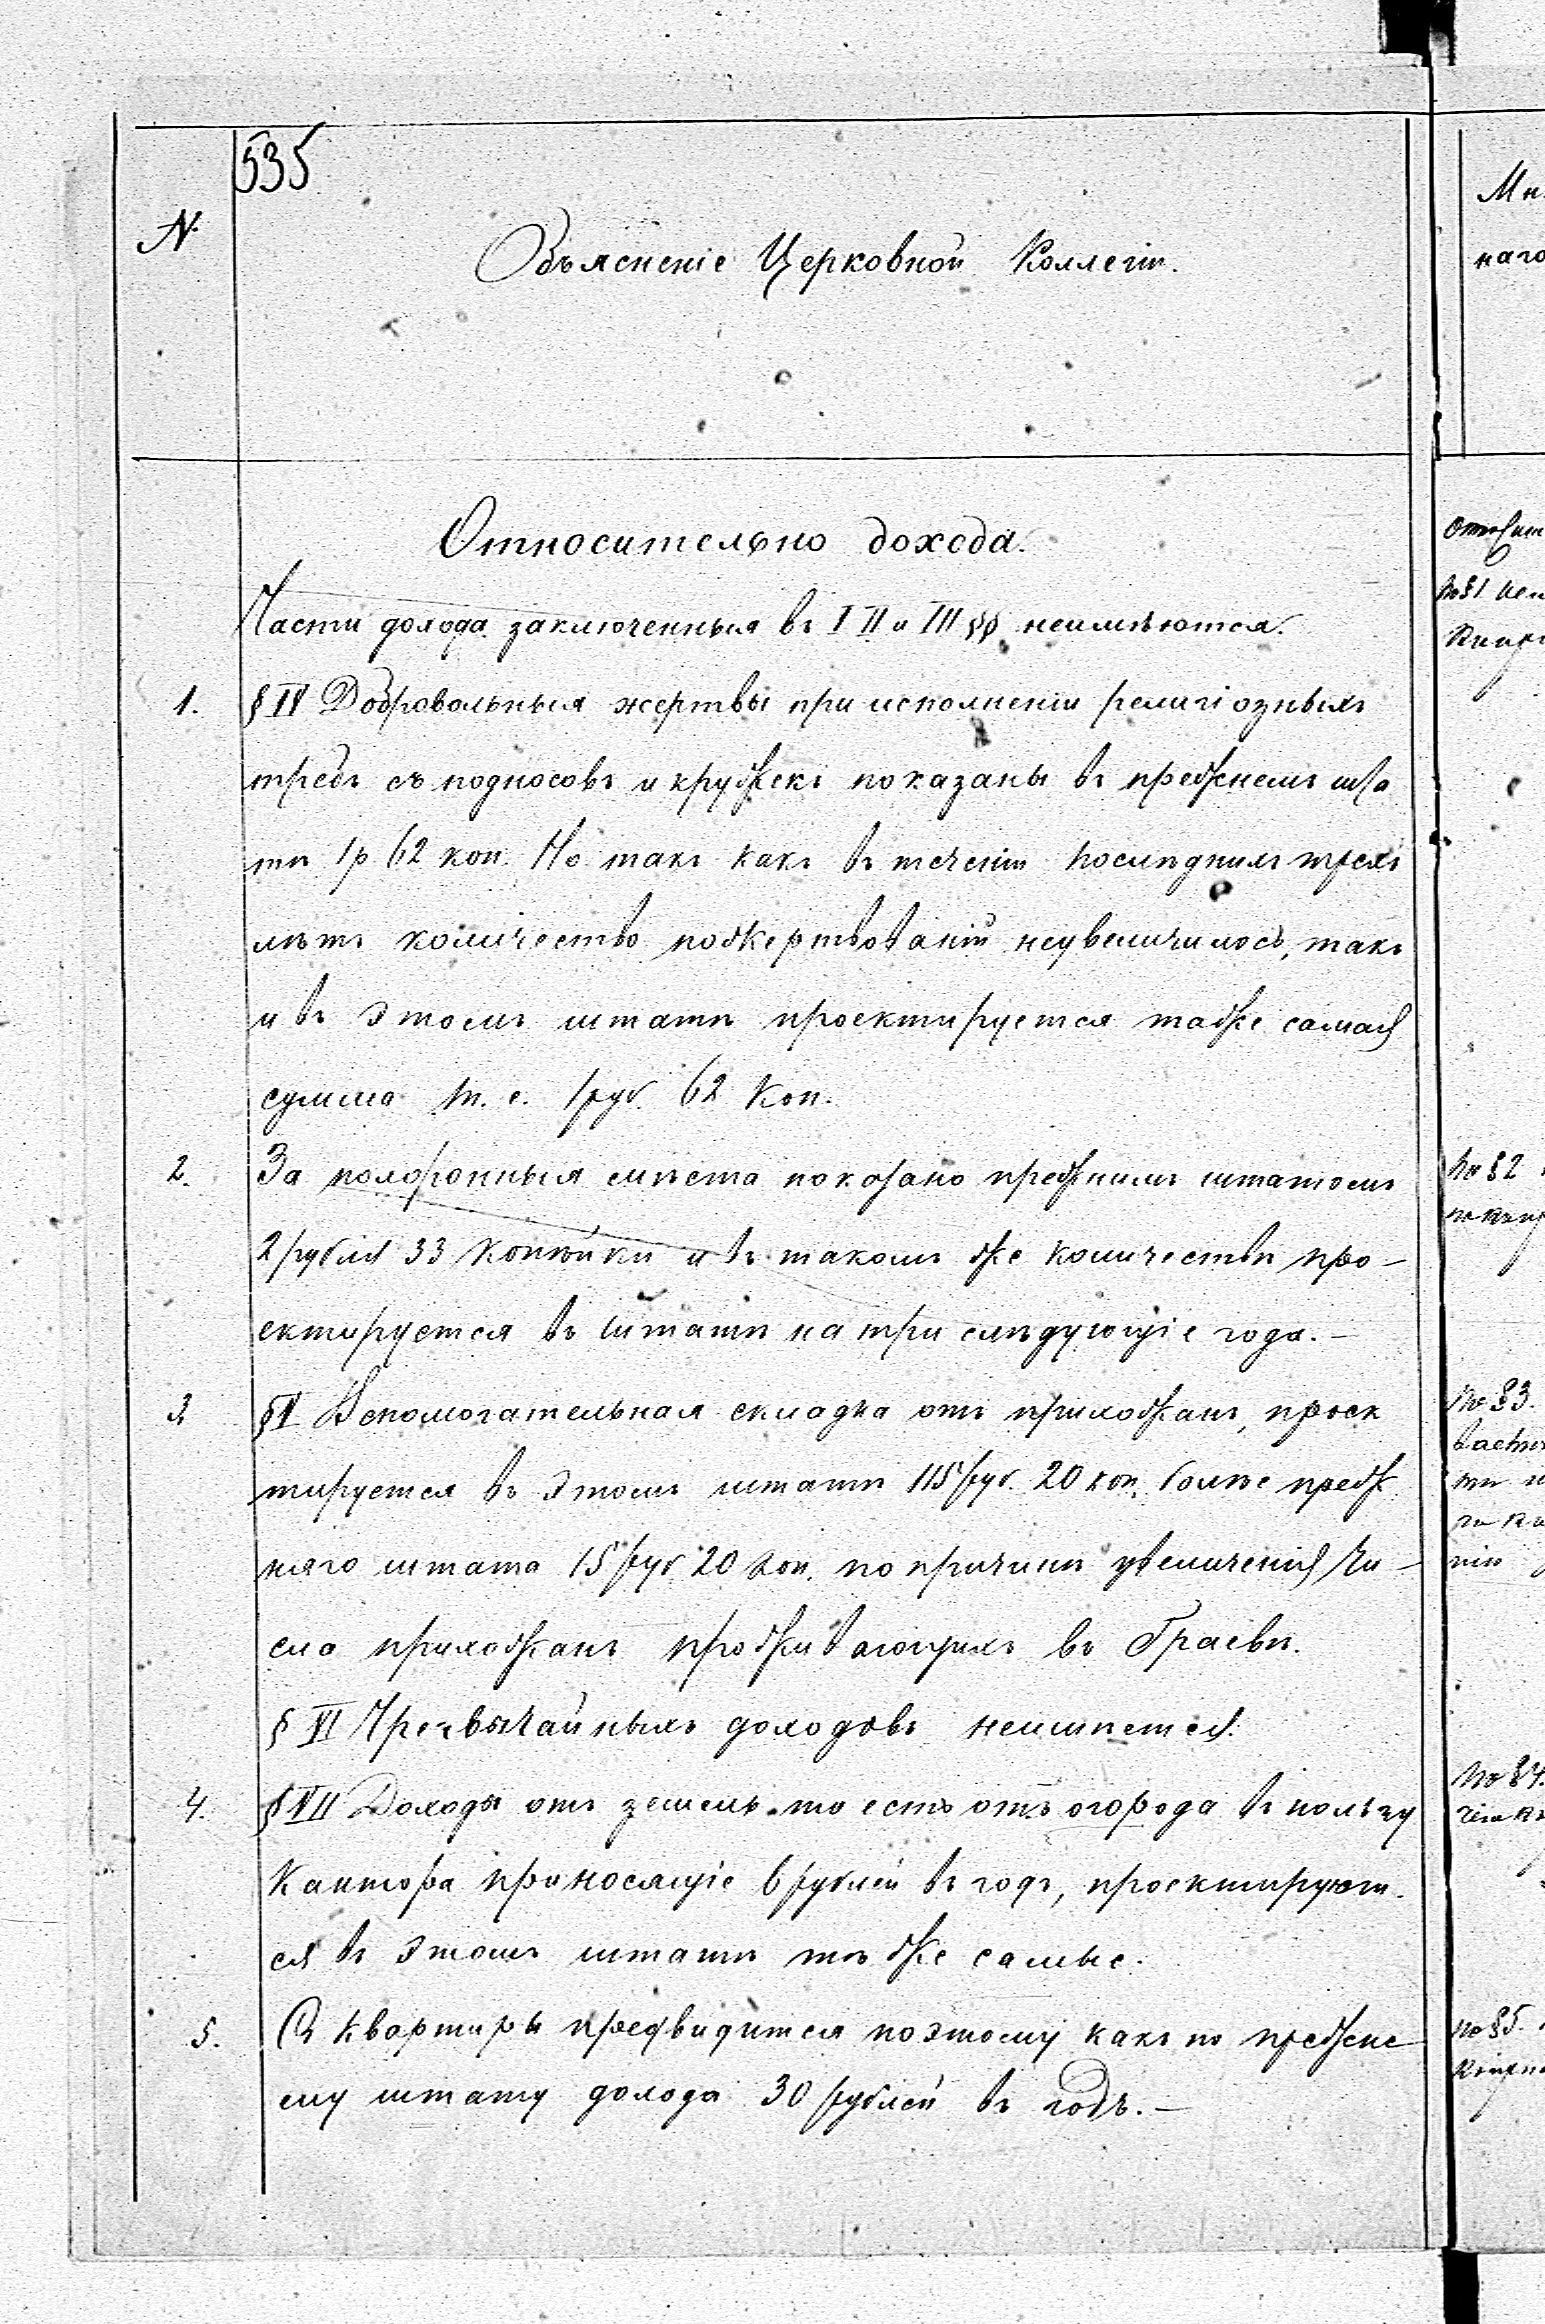 535
№
Объясненіе Церковной Коллегіи.
Относительно дохода.
Части дохода заключенныя въ I II и III §§ неимѣются.
1. § IV Добровольныя жертвы при исполненіи религіозныхъ
требъ съ подносовъ и кружекъ показаны въ прежнемъ шта
тѣ 1 р 62 коп. Но такъ какъ въ теченіи послѣднихъ трехъ
лѣтъ количество пожертвованій неувеличилось, такъ
и въ этомъ штатѣ проектируется таже самая
сумма т. е. 1 руб. 62 коп.
2. За похоронныя мѣста показано прежнимъ штатомъ
2 рубля 33 копѣйки и въ такомъ же количествѣ про-
ектируется въ штатѣ на три слѣдующіе года. -
3 § V Вспомогательная складка отъ прихожанъ, проэк
тируется въ этомъ штатѣ 115 руб. 20 коп. болѣе преж
няго штата 15 руб 20 коп. по причинѣ увеличенія чи-
сла прихожанъ проживающихъ въ Граевѣ.
§ VI Чрезвычайныхъ доходовъ неимѣется.
4. § VII Доходы отъ земель то есть отъ огорода въ пользу
Кантора приносящіе 6 рублей въ годъ, проектируют-
ся въ этомъ штатѣ тѣ же самые.
5. Съ квартиры предвидится поэтому какъ по прежне
му штату дохода 30 рублей въ годъ. -
Мн
наго
по §1
по §2
по §3.
по §4.
по §5.